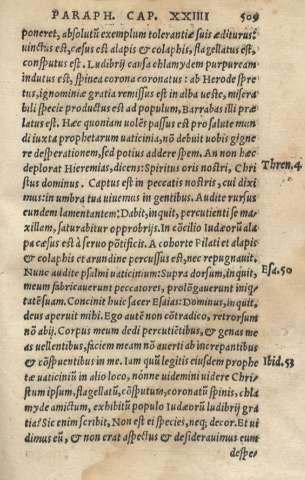 PARAPH. CAP. XXIIII 509
poneret, absolutũ exemplum tolerantiæ suis æditurus:
vinctus est, cæsus est alapis & colaphis, flagellatus est,
consputus est. Ludibrij causa chlamydem purpuream
indutus est, spinea corona coronatus: ab Herode spre
tus, ignominiæ gratia remissus est in alba veste, misera
bili specie productus est ad populum, Barrabas illi præ
latus est. Hæc quoniam uolẽs passus est pro salute mun
di iuxta prophetarum uaticinia, nõ debuit uobis gigne
re desperationem, sed potius addere spem. An non hæc
deplorat Hieremias, dicens: Spiritus oris nostri, Chri Thren. 4
stus dominus. Captus est in peccatis nostris, cui dixi
mus: in umbra tua viuemus in gentibus. Audite rursus
eundem lamentantem: Dabit, inquit, percutienti se ma
xillam, saturabitur opprobrijs. In cõcilio Iudæorũ ala
pa cæsus est à seruo põtificis. A cohorte Pilati et alapis
& colaphis et arundine percussus est, nec repugnauit.
Nunc audite psalmi uaticinium: Supra dorsum, inquit, Esa. 50
meum fabricauerunt peccatores, prolõgauerunt iniq
tatẽ suam. Concinit huic sacer Esaias: Dominus, inquit,
deus aperuit mihi. Ego autẽ non cõtradico, retrorsum
nõ abij. Corpus meum dedi percutiẽtibus, & genas me
as uellentibus, faciem meam nõ auerti ab increpantibus
& cõspuentibus in me. Iam quũ legitis eiusdem prophe Ibid. 53
tæ uaticiniũ in alio loco, nónne uidemini videre Chri
stum ipsum, flagellatũ, cõsputum, coronatũ spinis, chla
myde amictum, exhibitũ populo Iudæorũ ludibrij gra
tia? Sic enim scribit, Non est ei species, neq; decor. Et ui
dimus eũ, & non erat aspectus & desiderauimus eum
despe‐